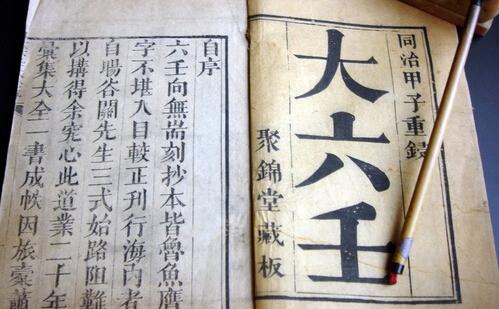 同治甲子重鐫
大六壬
聚錦堂藏板
自序
六壬向無耑刻抄本皆魯魚贋
字不堪入目較正刊行海內者
自塲谷關先生三式始路阻難
以搆得余究心此道業二十年
彙集大全一書成帙因旅橐蕭